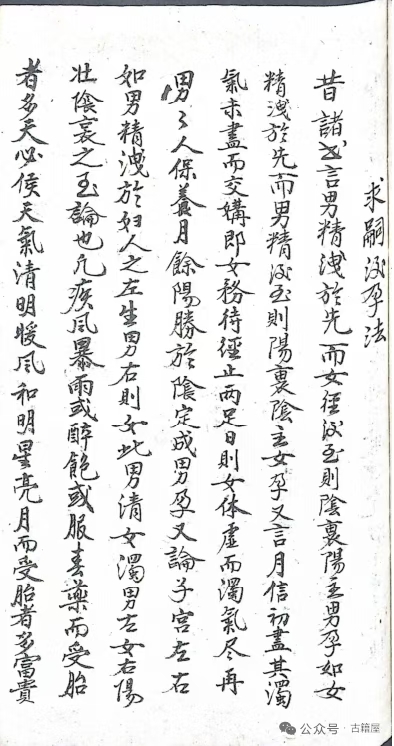 求嗣政孕法
昔諸書言男精洩於先而女徑政至則陰裹陽主男孕如女
精洩於先而男精政至則陽裹陰主女孕又言月信初盡其濁
氣未盡而交媾即女務待徑止两足日則女体虛而濁氣尽再
男々人保養月餘陽勝於陰定成男孕又論子宮左右
如男精洩於妇人之左生男右則女此男清女濁男左女右陽
壯陰衰之至論也凢疾风暴雨或醉飽或服春藥而受胎
者多夭必侯天氣清明暖风和明星亮月而受胎者多富貴
公众号·古籍屋